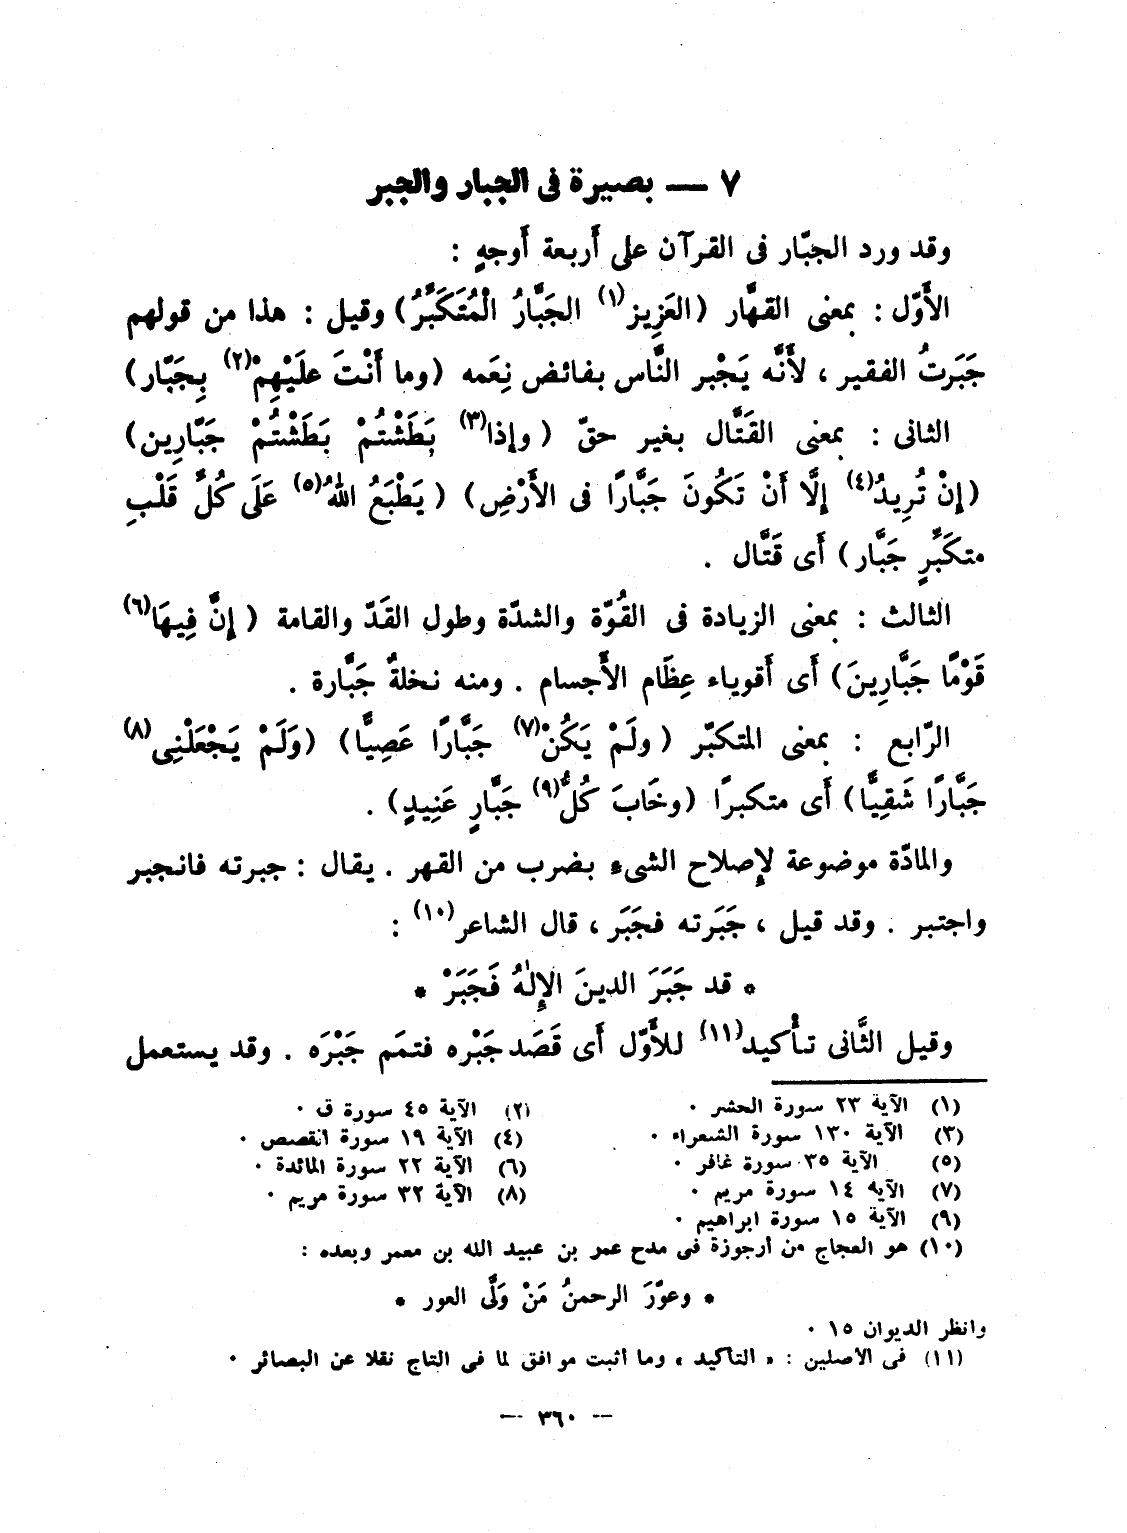 ٧ — بصيرة فى الجبار والجبر
وقد ورد الجبّار فى القرآن على أَربعة أَوجهٍ :
الأَوّل : بمعنى القهَّار (العَزِيز(١) الجَبَّارُ الْمُتَكَبِّرُ) وقيل : هذا من قولهم
جَبَرتُ الفقير ، لأَنَّه يَجْبر النَّاس بفائض نِعَمه (وما أَنْتَ علَيْهِمْ(٢) بِجَبّار)
الثانى : بمعنى القَتَّال بغير حقّ ( وإِذا(٣) بَطَشْتُمْ بَطَشْتُمْ جَبّارِين)
(إِنْ تُرِيدُ(٤) إِلَّا أَنْ تَكُونَ جَبَّارًا فى الأَرْضِ) ( يَطْبَعُ اللهُ(٥) عَلَى كُلِّ قَلْبِ
متكَبِّرٍ جَبَّار) أَى قَتَّال .
الثالث : بمعنى الزيادة فى القُوّة والشدّة وطول القَدّ والقامة ( إِنَّ فِيهَا(٦)
قَوْمًا جَبَّارِينَ) أَى أَقوياء عِظَام الأَجسام . ومنه نخلةٌ جَبَّارة .
الرّابع : بمعنى المتكبّر ( ولَمْ يَكُنْ(٧) جَبَّارًا عَصِيًّا) (وَلَمْ يَجْعَلْنِى(٨)
جَبَّارًا شَقِيًّا) أَى متكبرًا (وخَابَ كُلُّ(٩) جَبَّارٍ عَنِيدٍ) .
والمادّة موضوعة لإِصلاح الشىء بضرب من القهر . يقال : جبرته فانجبر
واجتبر . وقد قيل ، جَبَرته فجَبَر ، قال الشاعر(١٠) :
* قد جَبَرَ الدينَ الإِلٰهُ فَجَبَرْ *
وقيل الثَّانى تأْكيد(١١) للأَوّل أَى قَصَد جَبْره فتمَم جَبْرَه . وقد يستعمل
(١) الآية ٢٣ سورة الحشر ٠ (٢) الآية ٤٥ سورة ق ٠
(٣) الآية ١٣٠ سورة الشعراء ٠ (٤) الآية ١٩ سورة القصص ٠
(٥) الآية ٣٥ سورة غافر ٠ (٦) الآية ٢٢ سورة المائدة ٠
(٧) الآية ١٤ سورة مريم ٠ (٨) الآية ٣٢ سورة مريم ٠
(٩) الآية ١٥ سورة ابراهيم ٠
(١٠) هو العجاج من أرجوزة فى مدح عمر بن عبيد الله بن معمر وبعده :
* وعوّرَ الرحمنُ مَنْ وَلَّى العور *
وانظر الديوان ١٥ ٠
(١١) فى الأصلين : « التأكيد » وما أثبت موافق لما فى التاج نقلا عن البصائر ٠
— ٣٦٠ —